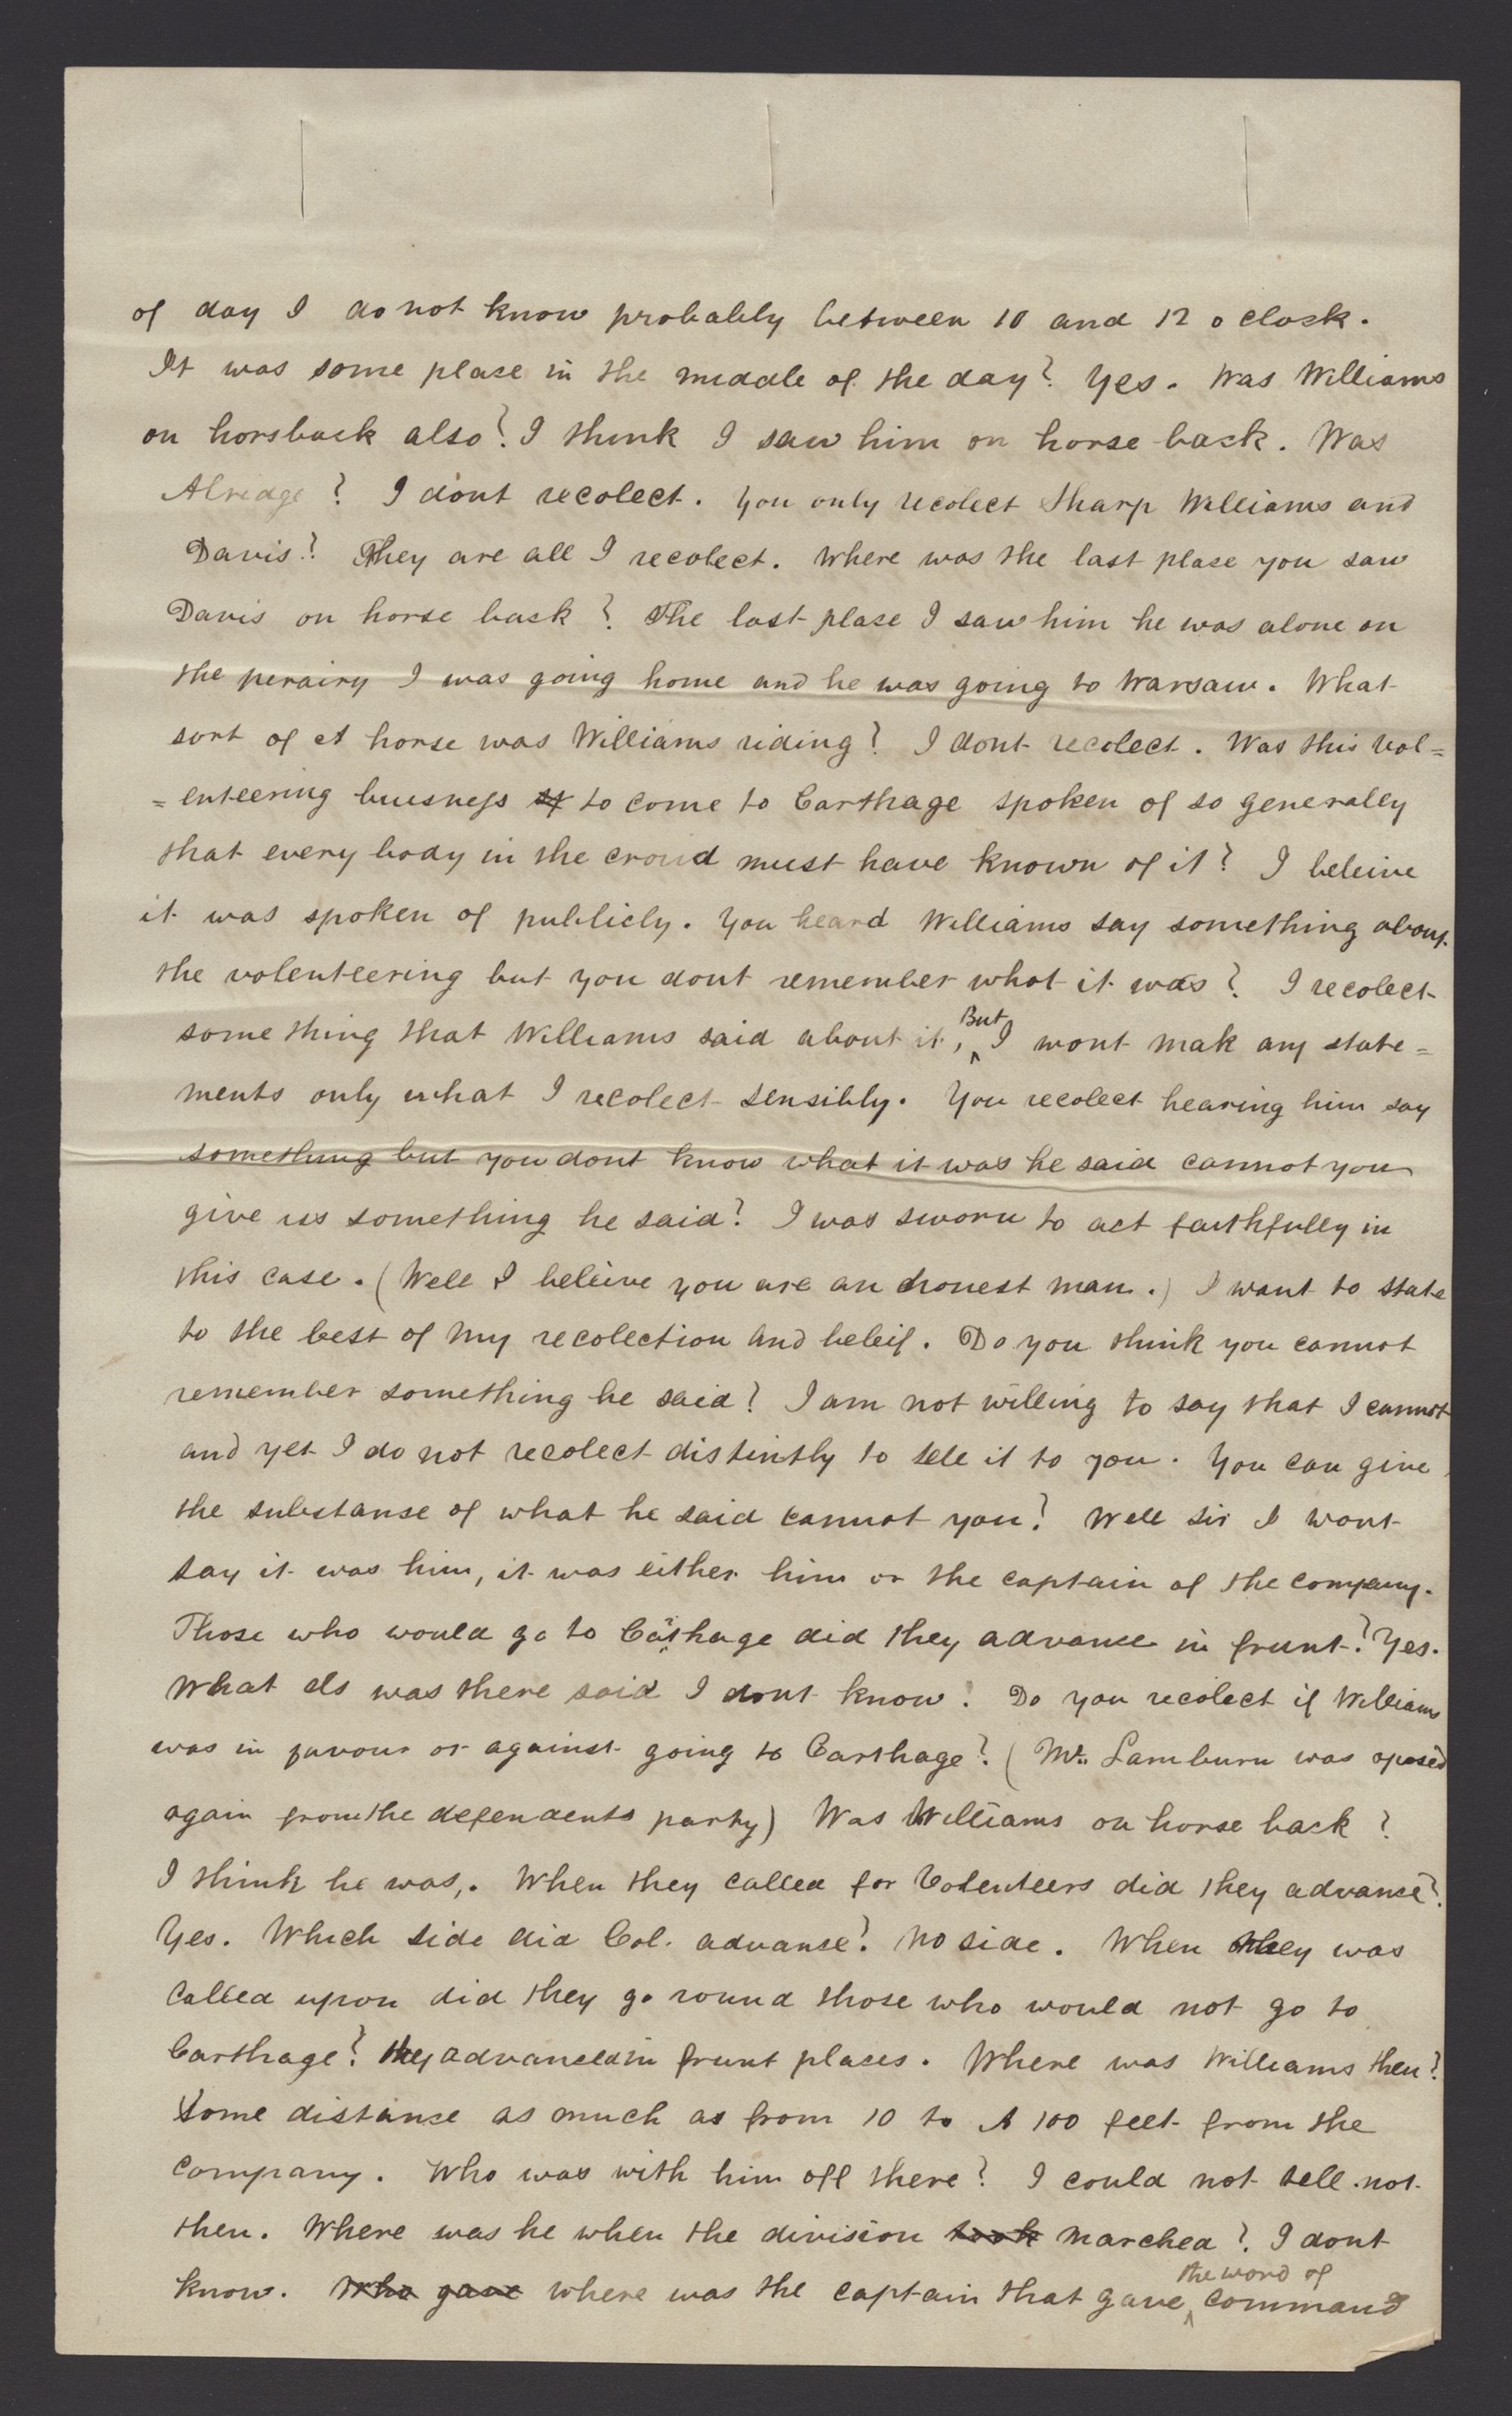 of day I do not know probabely between 10 and 12 o clock.
It was some plase in the middle of the day? Yes. Was Williams
on horsback also? I think I saw him on horse back. Was
Alredge? I dont recolect. You only recolect Sharp Williams and
Davis? They are all I recolect. Where was the last plase you saw
Davis on horse back? The last plase I saw him he was alone on
the perairy I was going home and he was going to Warsaw. What
sort of a horse was Williams riding? I dont recolect. Was this vol=
=enteering buesness to come to Carthage spoken of so generally
that every body in the croud must have known of it? I beleive
it was spoken of publicly. You heard Williams say something about
the volenteering but you dont remember what it was? I recolect
some thing that Williams said about it, But I wont mak any state=
ments only what I recolect sensibly. You recolect hearing him say
something but you dont know what it was he said cannot you
give us something he said? I was sworn to act faithfully in
this case. (Well I beleive you are an honest man.) I want to state
to the best of my recolection and beleif. Do you think you cannot
remember something he said? I am not willing to say that I cannot
and yet I do not recolect distintly to tell it to you. You can give
the substanse of what he said cannot you? Well sir I wont
say it was him, it was either him or the captain of the company.
Those who would go to Carthage did they advance in frunt? Yes.
What els was there said I dont know. Do you recolect if Williams
was in favour or against going to Carthage? (Mr. Lamburn was oposed
again from the defendents party) Was Williams on horse back?
I think he was,. When they called for Volenteers did they advance?
Yes. Which side did Col. advanse? No side. When they was
Called upon did they go round those who would not go to
Carthage? they advanced in frunt places. Where was Williams then?
Some distanse as much as from 10 to 100 feet from the
company. Who was with him off there? I could not tell not
then. Where was he when the division took marched? I dont
know. Who gave where was the captain that gave the word of command